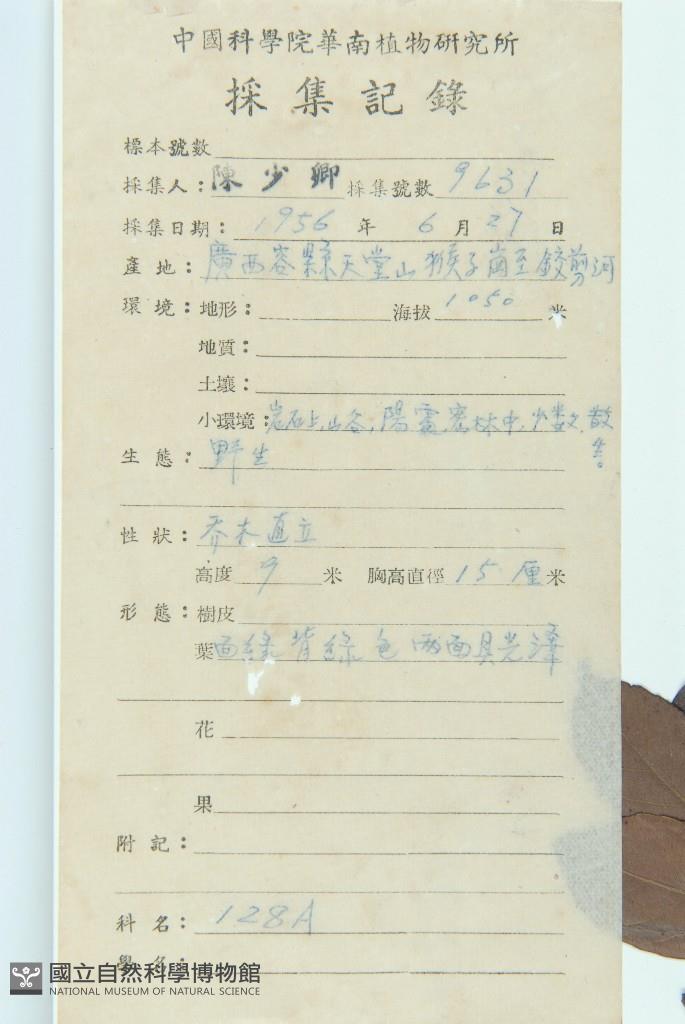 中國科學院華南植物研究所
採集記錄
標本號數
採集人：陳少卿 採集號數 9631
採集日期：1956 年 6 月 27 日
產地：廣西容縣天堂山猴子崗至鉸剪河
環境：地形： 海拔 1050 米
地質：
土壤：
小環境：岩石上，山谷，陽處，密林中，少數，散生。
生態：野生
性狀：乔木直立
高度 9 米 胸高直徑 15 厘米
形態：樹皮
葉面綠背綠色两面具光澤
花
果
附記：
科名：128A
學名：
國立自然科學博物館
NATIONAL MUSEUM OF NATURAL SCIENCE